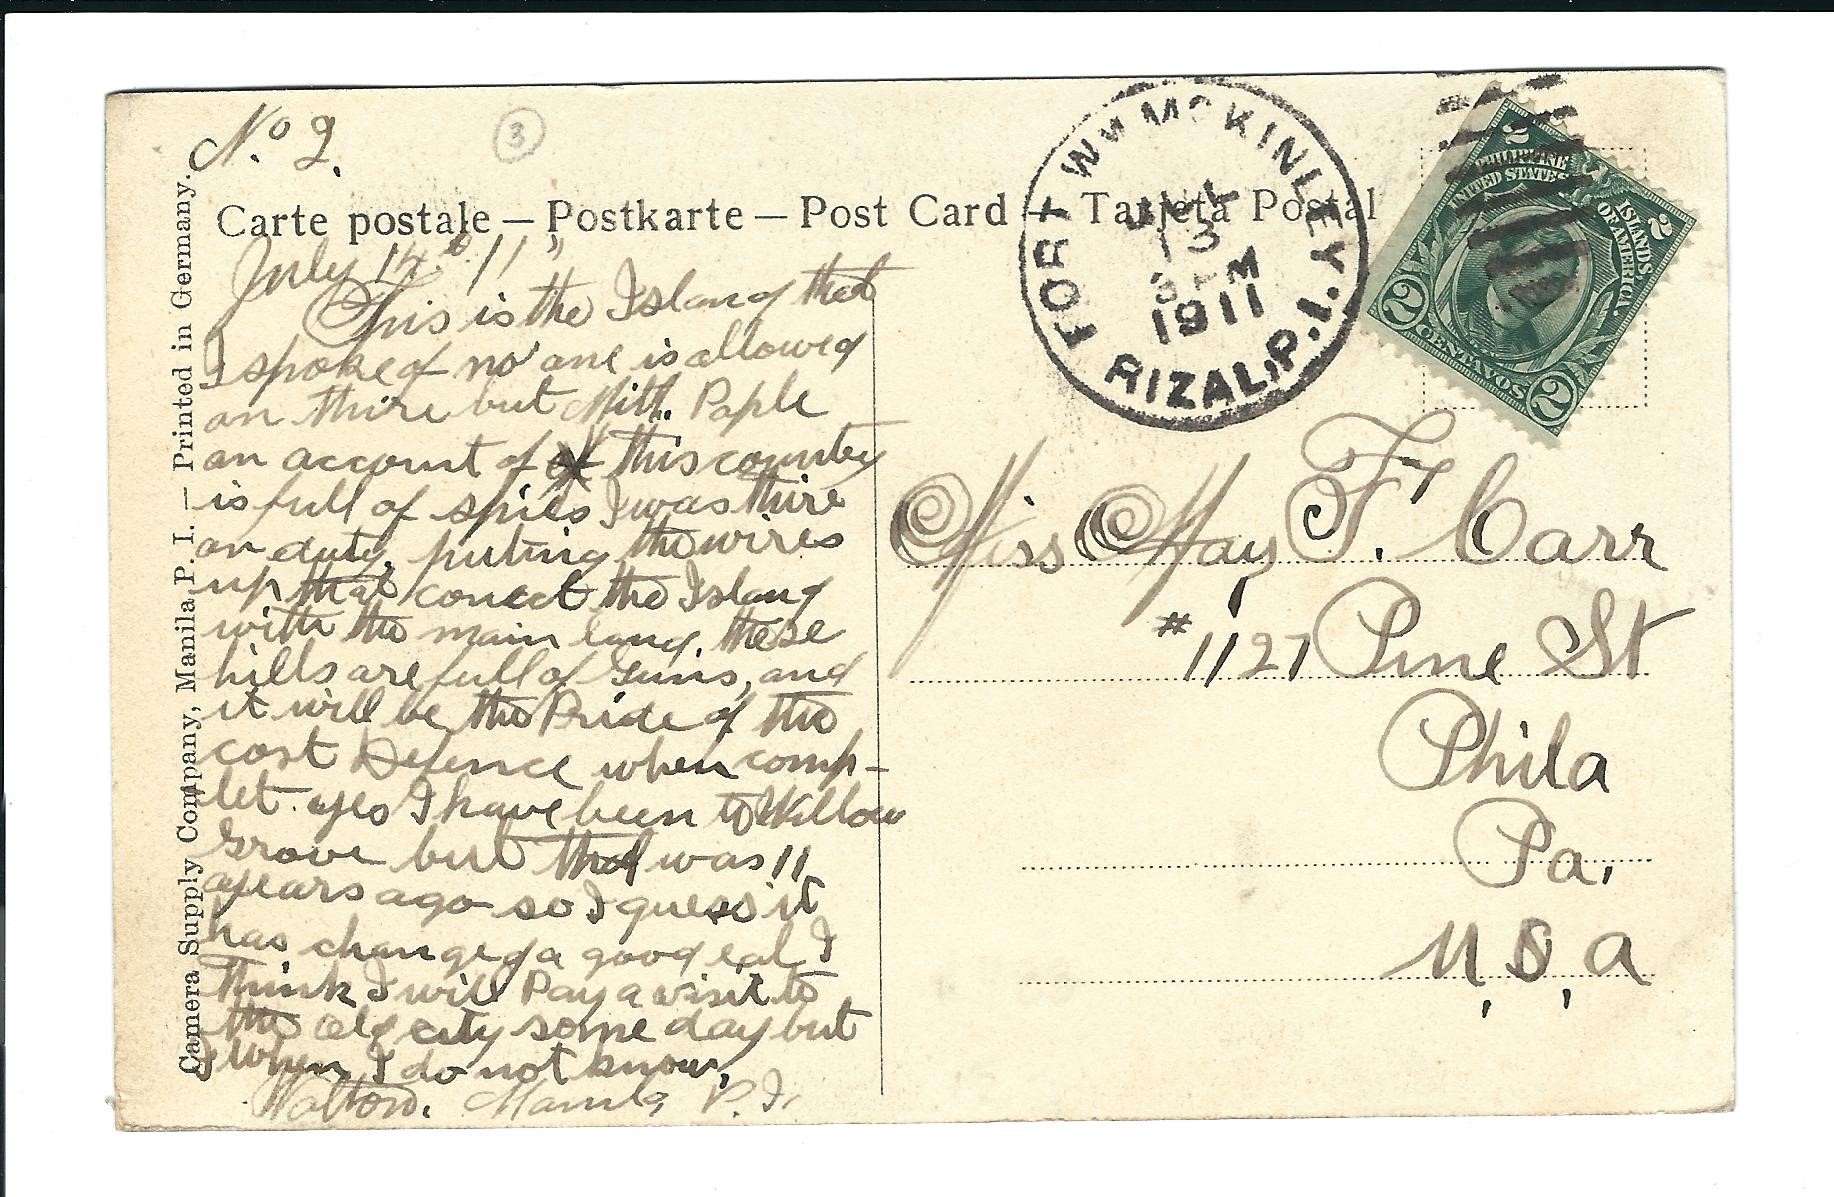 No. 2.
3
Carte postale – Postkarte – Post Card – Tarjeta Postal
July 14th 11"
This is the Island that
I spoke of no one is allowed
on thire but Milt. Pople
on account of this country
is full of spies I was thire
on duty, puting the wires
up that conect the Island
with the main land, these
hills are full of Guns, and
it will be the Pride of the
cost Defence when comp-
let. yes I have been to Willow
Grove but that was 11
years ago so I guess it
has changed a good eal I
Think I will Pay a visit to
the old city some day but
when I do not know,
Walton. Manila, P. I.
Camera Supply Company, Manila, P. I. — Printed in Germany.
FORT WM MCKINLEY,
RIZAL, P.I.
JUL
13
3 PM
1911
2 2
PHILIPPINE ISLANDS
UNITED STATES OF AMERICA
2 CENTAVOS 2
Miss May F. Carr
# 1127 Pine St
Phila
Pa.
U, S, a